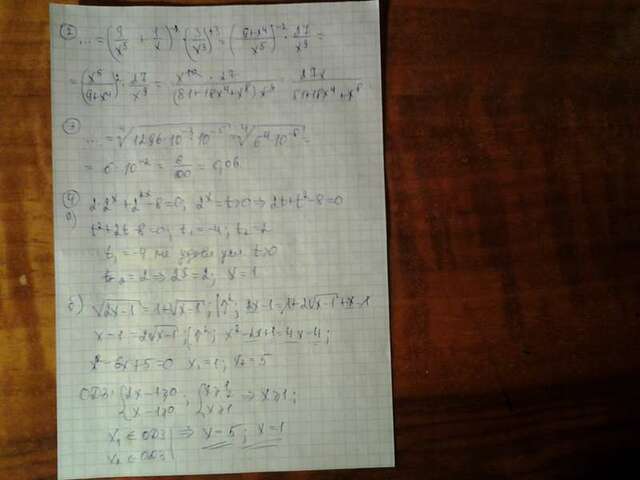 ② ... = (9/x⁵ + 1/x)⁻² · (3/x³)⁺³ = ((9+x⁴)/x⁵)⁻² · 27/x⁹ =
= (x⁵/(9+x⁴))² · 27/x⁹ = x¹⁰ · 27/((81+18x⁴+x⁸) · x⁹) = 27x/(81+18x⁴+x⁸)
③
= 6·10⁻² = 6/100 = 0,06
④
а) 2·2ˣ+2²ˣ-8=0; 2ˣ=t>0 ⇒ 2t+t²-8=0
t²+2t-8=0; t₁=-4; t₂=2
t₁=-4 не удовл. усл. t>0
t₂=2 ⇒ 2ˣ=2; x=1
б) √(2x-1)=1+√(x-1) |()²; 2x-1=1+2√(x-1)+x-1
x-1=2√(x-1) |()²; x²-2x+1=4x-4;
x²-6x+5=0 x₁=1; x₂=5
ОДЗ: {2x-1≥0 ; {x≥½ ⇒ x≥1;
{x-1≥0 {x≥1
x₁∈ОДЗ | ⇒ x=5; x=1
x₂∈ОДЗ |